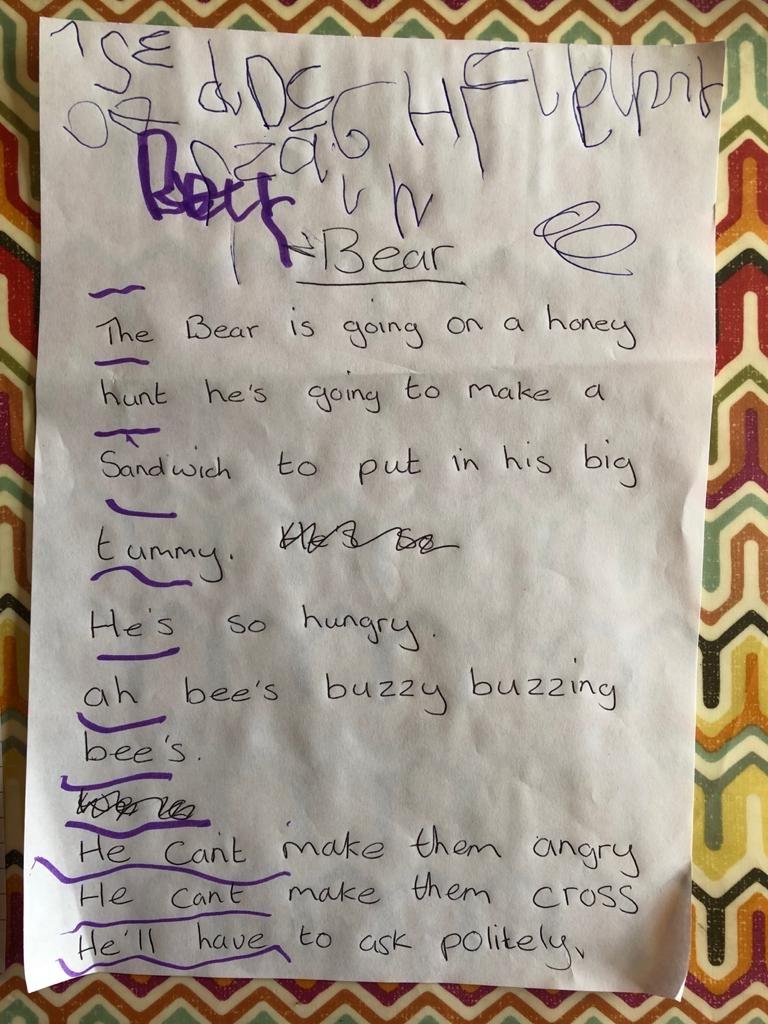 Bear
The Bear is going on a honey
hunt he's going to make a
Sandwich to put in his big
tummy.
He's so hungry.
ah bee's buzzy buzzing
bee's.
He can't make them angry
He cant make them cross
He'll have to ask politely.